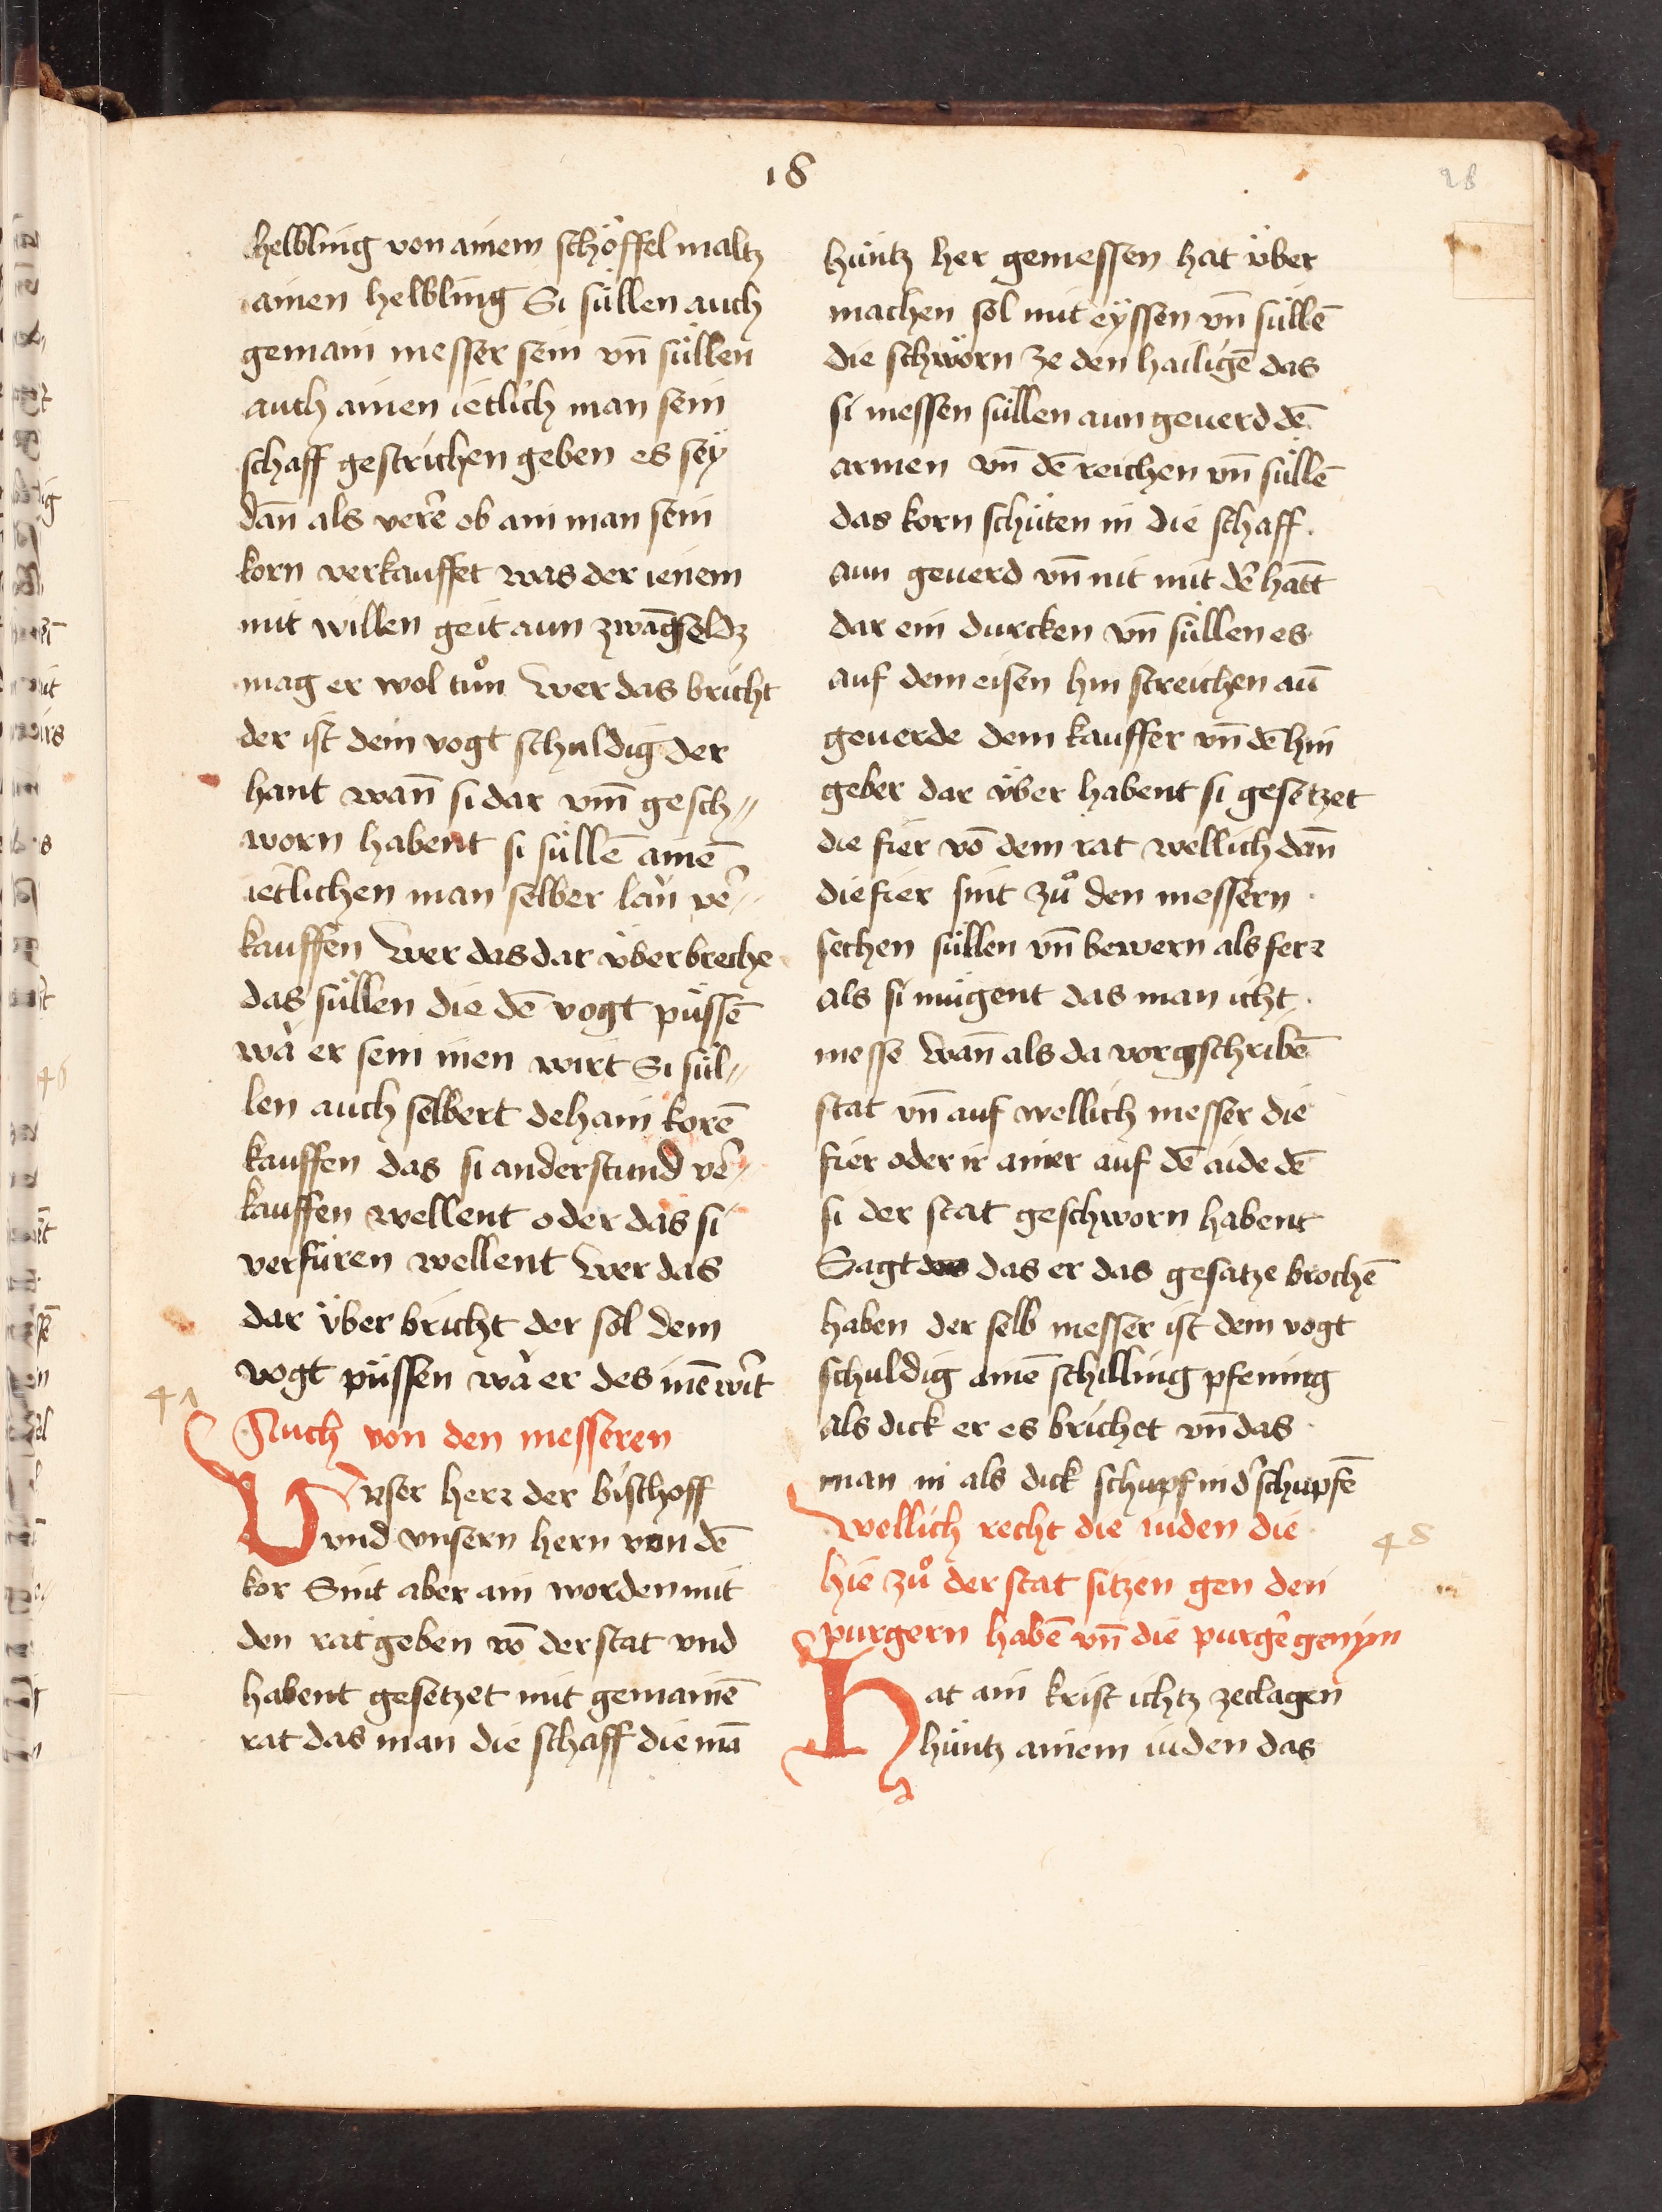 18
28
helbling von ainem schöffel maltz
ainen helbling Si süllen auch
gemain messer sein vn̄ süllen
auch ainen ietlich man sein
schaff gestrichen geben es seÿ
dan̄ als verr̄e ob ain man sein
korn verkauffet was der ienem
mit willen geit aun zwāgseldz
mag er wol tůn Wer das bricht
der ist dem vogt schuldig der
hant wan̄ si dar vm̄ gesch〃
worn habent si süllē ainē
ietlichen man selber laǔ vẽ〃
kauffen Wer das dar v̈ber breche
das süllen die dē vogt püssē
wà er sein inen wirt Si sül〃
len auch selbert dehain korē
kauffen das si anderstund vẽ〃
kauffen wellent oder das si
verfüren wellent Wer das
dar v̈ber bricht der sol dem
vogt püssen wà er des inē wir̃t
47
Auch von den messeren
Vnser herr der bischoff
vnd vnsern hern von dē
kor Sint aber ain worden mit
den ratgeben vō der stat vnd
habent gesetzet mit gemainē
rat das man die schaff die mā
hüntz her gemessen hat v̈ber
machen sol mit eÿssen vn̄ süllē
die schwörn ze den hailigē das
si messen süllen aun geuerd dē
armen vn̄ dē reichen vn̄ süllē
das korn schüten in die schaff.
aun geuerd vn̄ nit mit dē hātt
dar ein durcken vn̄ süllen es
auf dem eisen hin streichen aū
geuerde dem kauffer vn̄ dē hin
geber dar v̈ber habent si gesetzet
die fier vō dem rat wellich dan̄
die fier sint zů den messern
sechen süllen vn̄ bewern als ferr
als si mügent das man icht
messe wan̄ als da vorgschribē
stat vn̄ auf wellich messer die
fier oder ir ainer auf dē aide dē
si der stat geschworn habent
Sagt das er das gesatze brochē
haben der selb messer ist dem vogt
schuldig ainē schilling pfening
als dick er es brichet vn̄ das
man in als dick schupf in d̃ schupfē
Wellich recht die iuden die
48
hie zů der stat sitzen gen den
purgern habē vn̄ die purgẽ gen ÿm
Hat ain krist ichtz zeclagen
hüntz ainem iuden das